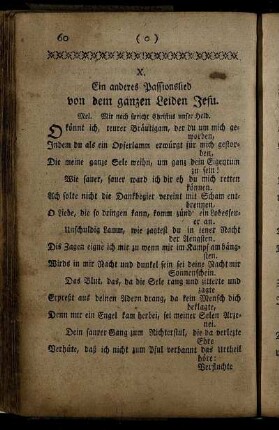 60 ( o )
X.
Ein anderes Passionslied
von dem ganzen Leiden Jesu.
Mel. Mir nach spricht Christus unser Held.
O könnt ich, teurer Bräutigam, der du um mich ge-
worden,
Indem du als ein Opferlamm erwürgt für mich gestor-
ben,
Die meine ganze Sele weihn, um ganz dein Eigentum
zu sein!
Wie sauer, sauer ward ich dir eh du mich retten
können.
Ach solte nicht die Dankbegier vereint mit Scham ent-
brennen.
O Liebe, die so dringen kann, komm zünd ein
er an.
Unschuldig Lamm, wie zagtest du in jener Nacht
der Aengsten.
Dis Zagen eigne ich mir zu wenn mir im Kampf am bäng-
sten.
Wirds in mir Nacht und dunkel sein sei deine Nacht mir
Sonnenschein.
Das Blut, das, da die Sele rang und zitterte und
zagte
Erpreßt aus deinen Adern drang, da kein Mensch dich
beklagte,
Denn nur ein Engel kam herbei, sei meiner Selen Arze-
nei.
Dein saurer Gang zum Richterstul, die da verlezte
Ehre
Verhüte, daß ich nicht zum Pful verbannt das Urtheil
höre:
Verfluchte